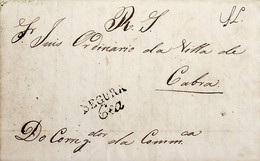 R. S.
Sr. Juis Ordinario da Villa de
Cabra
SEGURA
Cea
Do Corregdor da Commca